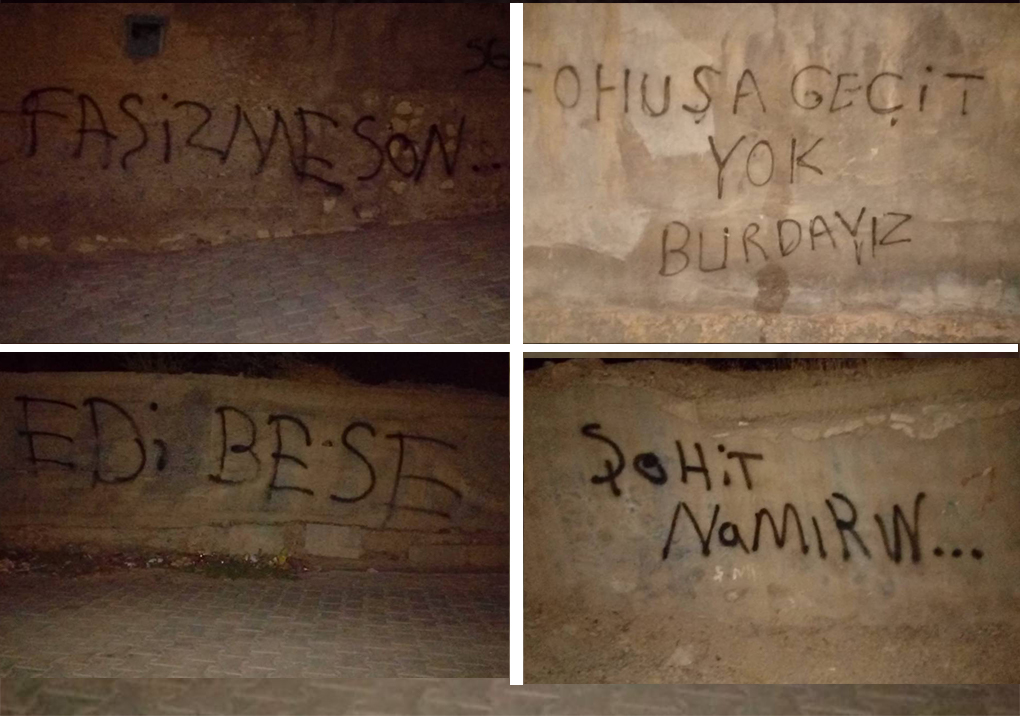 SE
FAŞİZME SON...
FOHUŞA GEÇİT
YOK
BURDAYIZ
EDi BESE
ŞeHiT
NaMIRIN...